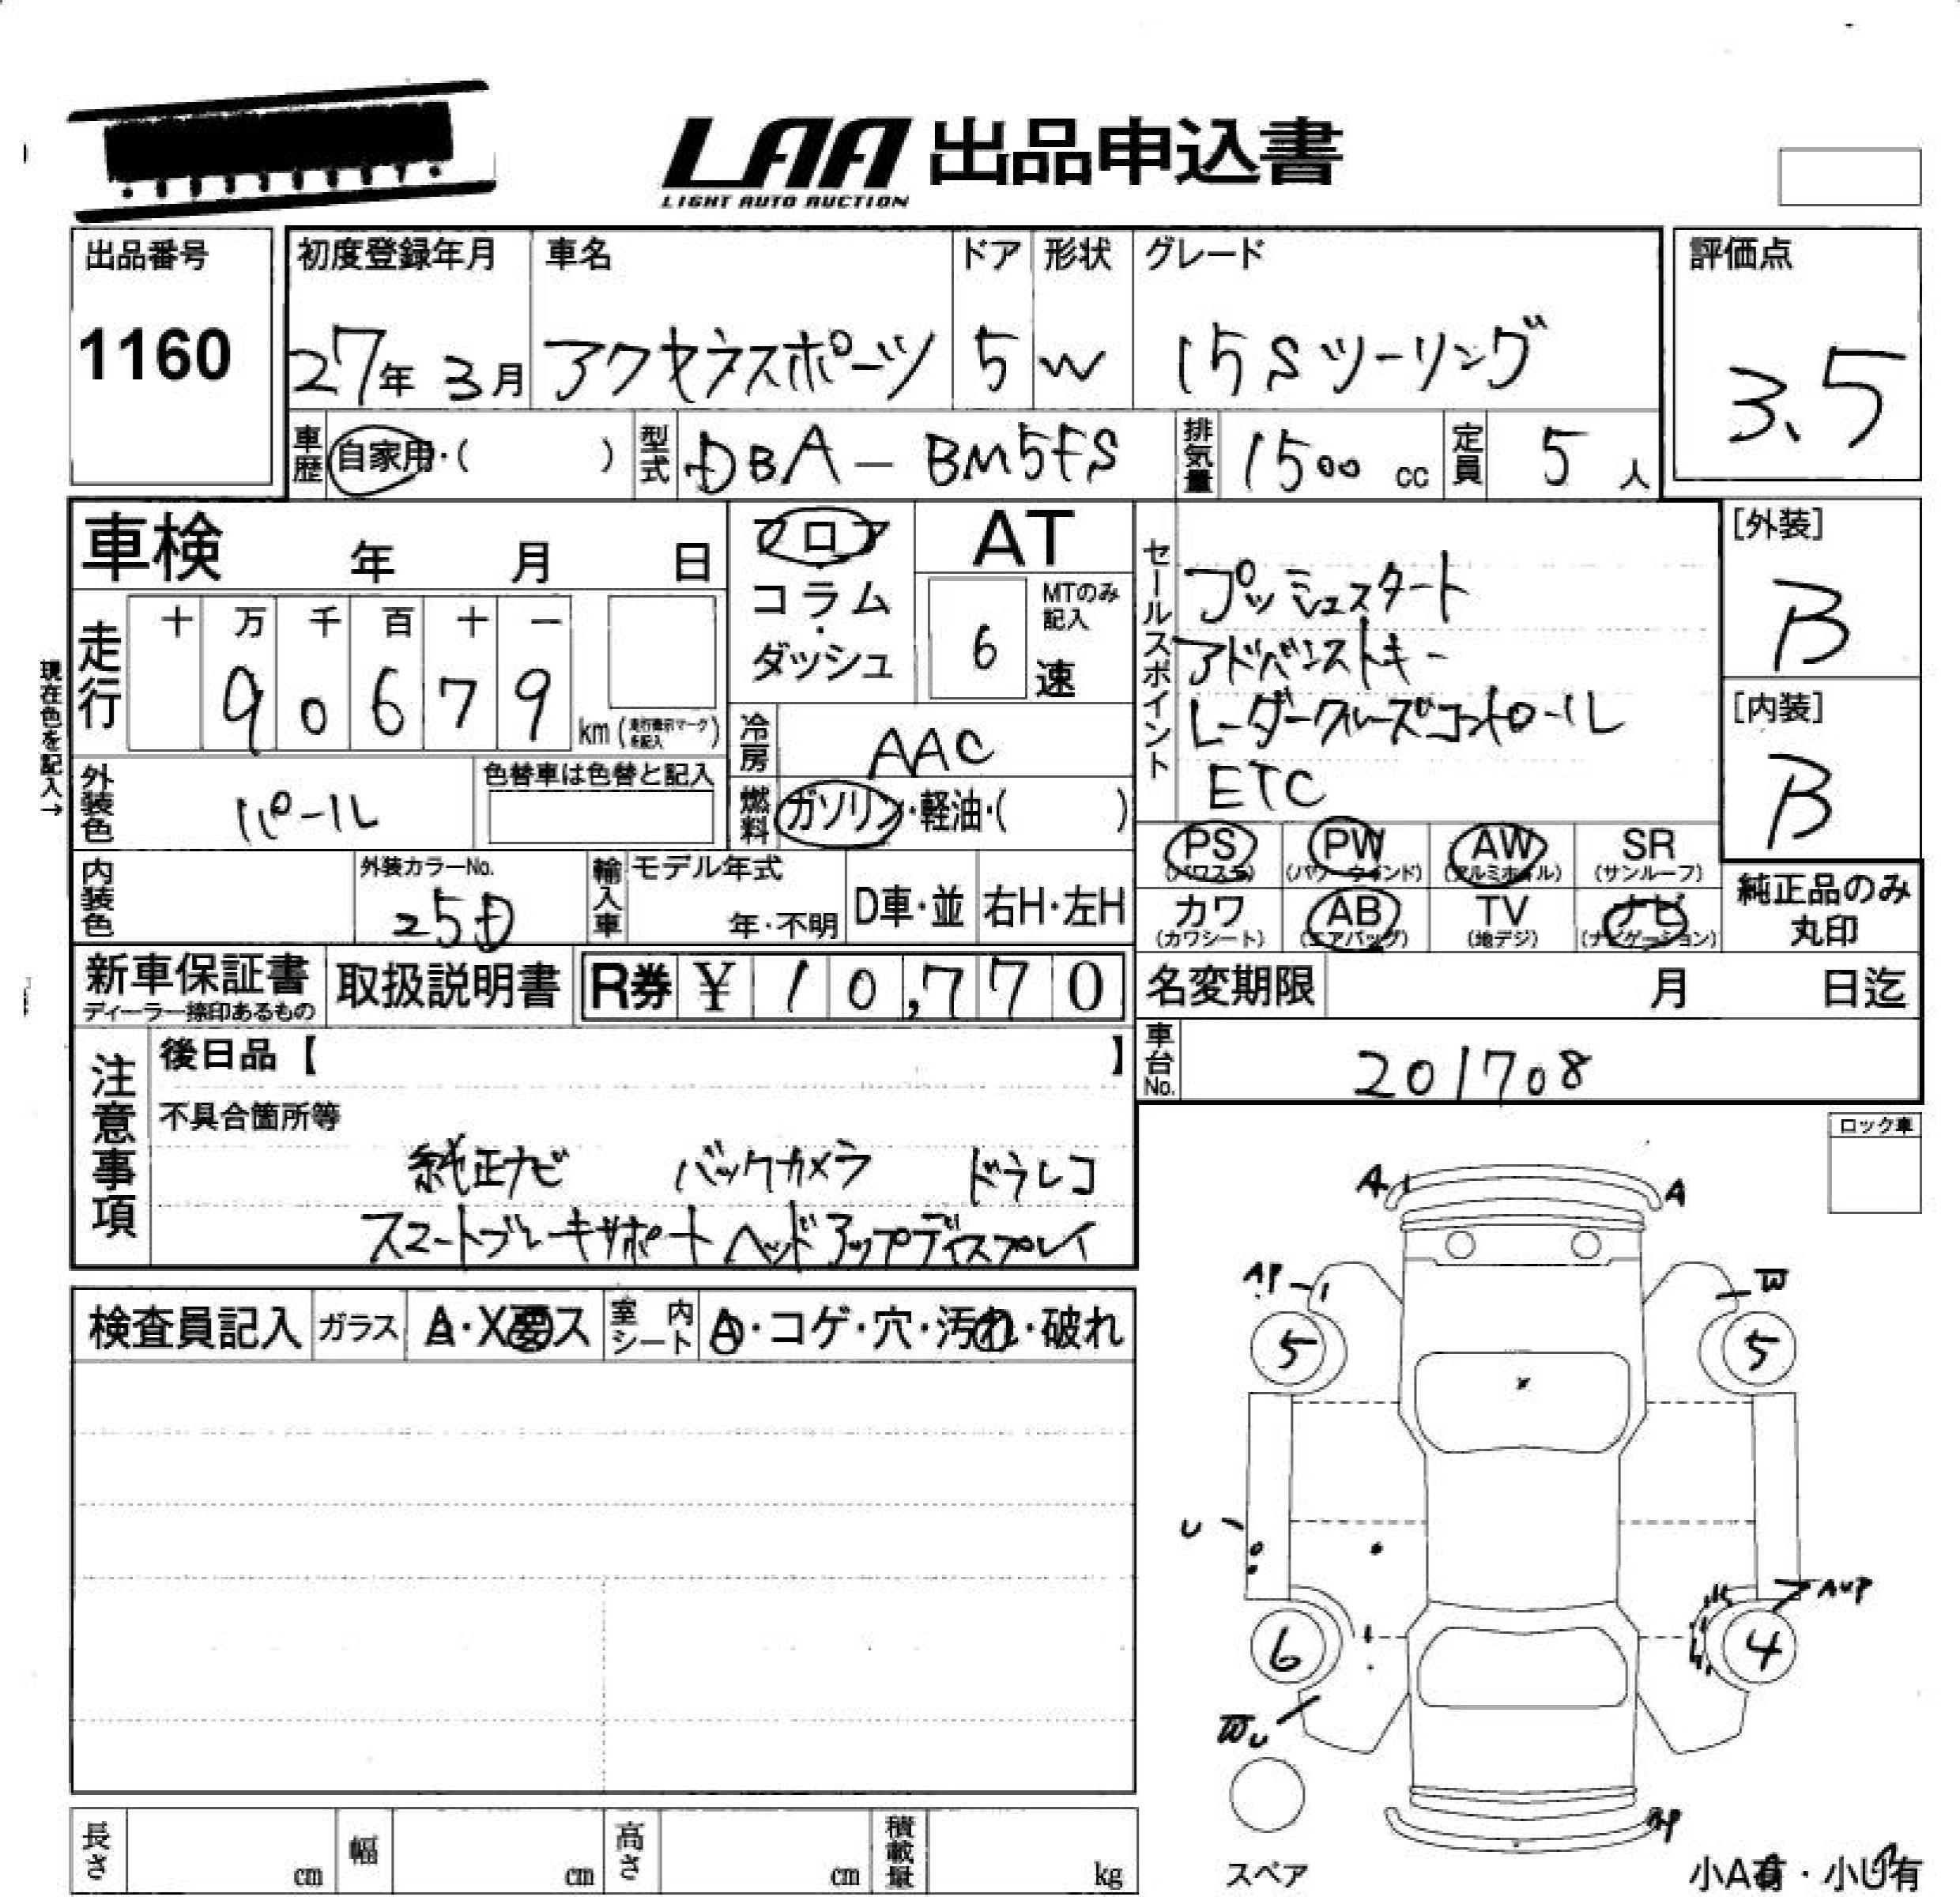 LAA 出品申込書
LIGHT AUTO AUCTION
出品番号 初度登録年月 車名 ドア 形状 グレード 評価点
1160 27年 3月 アクセラスポーツ 5 W 15Sツーリング 3.5
車歴 自家用・( ) 型式 DBA-BM5FS 排気量 1500 cc 定員 5 人
車検 年 月 日 フロア AT セールスポイント [外装]
コラム・ダッシュ 6 速 MTのみ記入 プッシュスタート B
走行 十 万 千 百 十 一 アドバンストキー
9 0 6 7 9 km レーダークルーズコントロール [内装]
現在色を記入→ 冷房 AAC ETC B
外装色 パール 色替車は色替と記入 燃料 ガソリン・軽油・( )
PS PW AW SR
(パワステ) (パワーウインド) (アルミホイル) (サンルーフ)
内装色 外装カラーNo. 25D 輸入車 モデル年式 年・不明 D車・並 右H・左H
カワ AB TV ナビ 純正品のみ丸印
(カワシート) (エアバッグ) (地デジ) (ナビゲーション)
新車保証書 取扱説明書 R券 ¥ 10,770 名変期限 月 日迄
ディーラー捺印あるもの
車台No. 201708
注意事項 後日品【 】
不具合箇所等 ロック車
純正ナビ バックカメラ ドラレコ
スマートブレーキサポート ヘッドアップディスプレイ
検査員記入 ガラス A・X要ス 室内シート A・コゲ・穴・汚れ・破れ
A A
AP W
5 5
X
U
AUP
6 4
WU
AP
スペア
長さ cm 幅 cm 高さ cm 積載量 kg 小A有・小U有